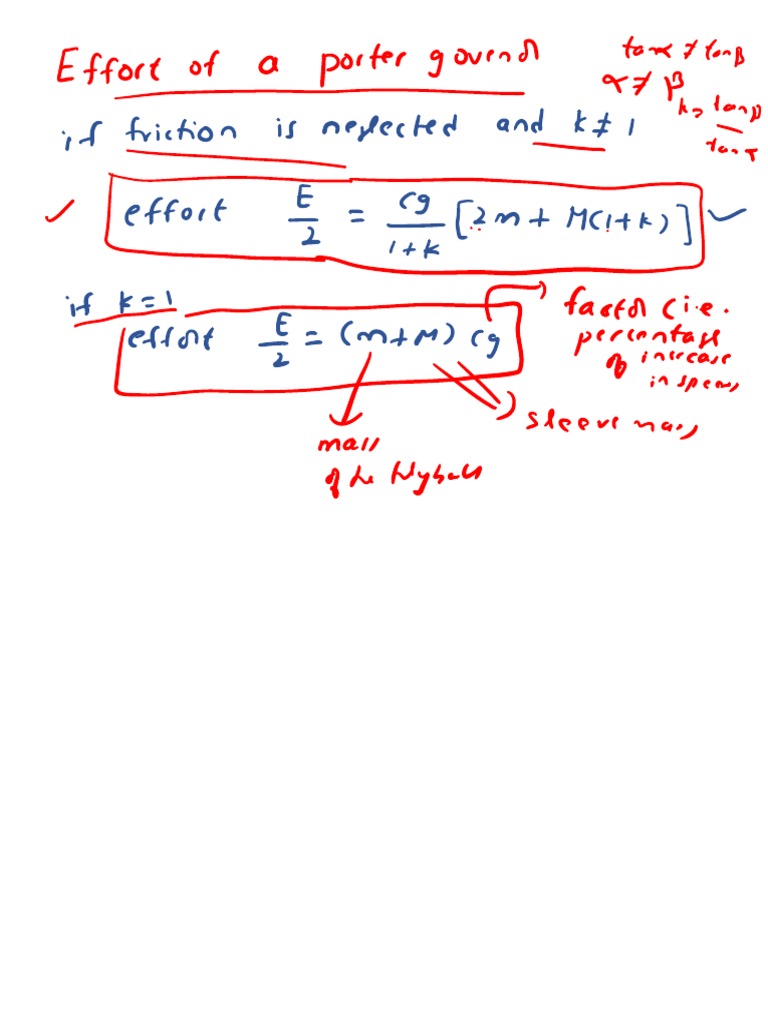 Effort of a porter govenor
tanα ≠ tanβ
α ≠ β
k = tanβ
tanα
if friction is neglected and k ≠ 1
effort E/2 = cg/1+k [2m + M(1+k)]
if k = 1
effort E/2 = (m+M) cg
factor (i.e.
percentage
of increase
in speed
sleeve mass
mass
of the flyballs